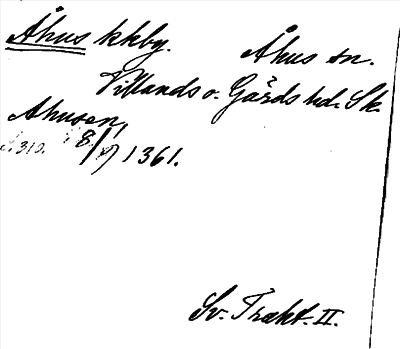 Åhus kkby. Åhus sn.
Villands o. Gärds hd. Sk.
Ahusen,
s. 310. 8/9 1361.
Sv. Trakt. II.